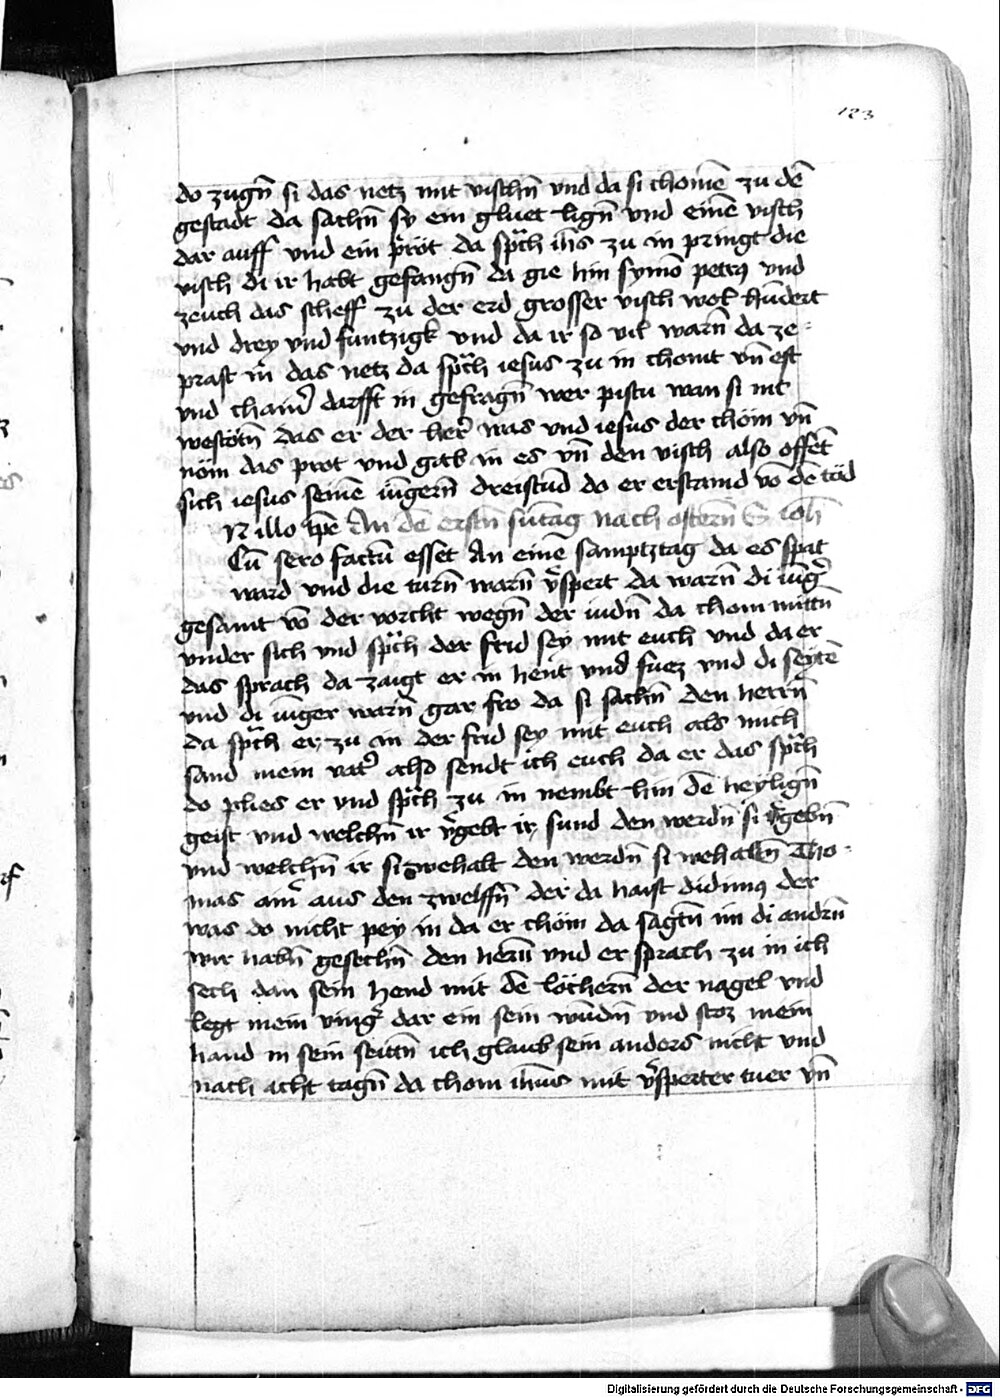 123
do zugn̄ si das netz mit vischn̄ vnd da si chomē zu dē
gestadt da sachn̄ sy ein gluet lign̄ vnd einē visch
dar auff vnd ein pröt da sp̄ch ih̄s zu in pringt die
visch di ir habt gefangn̄ da gie hin symō petrꝰ vnd
zeuch das scheff zu der erd grosser visch wol hūdert
vnd drey vnd funtzigk vnd da ir so vil warn̄ da ze-
prast nit das netz da sp̄ch iesus zu in chomt vn̄ est
vnd chainr̄ darfft in gefragn̄ wer pistu wan si nit
westötn̄ das er der her was vnd iesus der chöm vn̄
nöm das prot vnd gab in es vn̄ den visch also offet̄
sich iesus seinē iūgern̄ dreistūd do er erstand vō dē töd
N illo tp̄e An dē erstn̄ sūtag nach ostern̄ S ioh̄
Cū sero factū esset An einē samptztag da es spat
ward vnd die turn̄ warn̄ v̄spert da warn̄ di iūgr̄
gesamt vō der vorcht wegn̄ der iudn̄ da chom mittn̄
vnder sich vnd sp̄ch der frid sey mit euch vnd da er
das sprach da zaigt er in hent vnd fuez vnd di seytē
vnd di iūger warn̄ gar fro da si sachn̄ den herrn̄
da sp̄ch er zu in der frid sey mit euch als mich
sand mein vatr̄ also sendt ich euch da er das sp̄ch
do plies er vnd sp̄ch zu in nembt hin dē heylign̄
geist vnd welchn̄ ir v̄gebt ir sund den werdn̄ si v̄gebn̄
vnd welchn̄ ir si wehalt den werdn̄ si wehaltn̄ Tho-
mas ainr̄ aus den zwelffn̄ der da haist didimꝰ der
was do nicht pey in da er chöm da sagtn̄ im di andrn̄
wir habn̄ gesechn̄ den hern̄ vnd er sprach zu in ich
sech dan sein hend mit dē löchern̄ der nagel vnd
legt mein vingr̄ dar ein sein wūdn̄ vnd stoz mein
hand in sein seittn̄ ich glaub sein anders nicht vnd
nach acht tagn̄ da chom ih̄us mit v̄sperter tuer vn̄
Digitalisierung gefördert durch die Deutsche Forschungsgemeinschaft - DFG